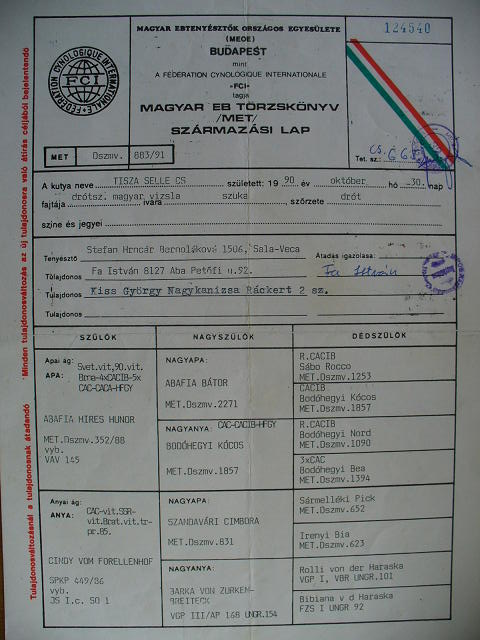 MAGYAR EBTENYÉSZTŐK ORSZÁGOS EGYESÜLETE
(MEOE)
BUDAPEST
mint
A FÉDÉRATION CYNOLOGIQUE INTERNATIONALE
-FCI-
tagja
MAGYAR EB TÖRZSKÖNYV
/MET/
SZÁRMAZÁSI LAP
FÉDÉRATION CYNOLOGIQUE INTERNATIONALE
FCI
124540
MET Dszmv. 883/91
Tet. sz.:
A kutya neve TISZA SELLE CS született: 19 90. év október hó 30. nap
fajtája drótsz. magyar vizsla ivara szuka szőrzete drót
színe és jegyei
Tenyésztő Stefan Hrncár Bernolákova 1506, Sala-Veca
Átadás igazolása:
Tulajdonos Fa István 8127 Aba Petőfi u.92. Fa István
Tulajdonos Kiss György Nagykanizsa Ráckert 2 sz.
Tulajdonos
SZÜLŐK NAGYSZÜLŐK DÉDSZÜLŐK
Apai ág:
APA:
Svet.vit,90.vit.
Brna-4xCACIB-5x
CAC-CACA-HFGY
ABAFIA HIRES HUNOR
MET.Dszmv.352/88
vyb.
VAV 145
NAGYAPA:
ABAFIA BÁTOR
MET.Dszmv.2271
NAGYANYA: CAC-CACIB-HFGY
BODÓHEGYI KÓCOS
MET.Dszmv.1857
R.CACIB
Sábo Rocco
MET.Dszmv.1253
CACIB
Bodóhegyi Kócos
MET.Dszmv.1857
R.CACIB
Bodóhegyi Nord
MET.Dszmv.1090
3xCAC
Bodóhegyi Bea
MET.Dszmv.1394
Anyai ág:
ANYA:
CAC-vit.SSR-
vit.Brat.vit.tr-
pr.85.
CINDY VOM FORELLENHOF
SPKP 449/86
vyb.
DS I.c. SO 1
NAGYAPA:
SZANDAVÁRI CIMBORA
MET.Dszmv.831
NAGYANYA:
BARKA VON ZURKEN-
BREITECK
VGP III/AP 168 UNGR.154
Sármelléki Pick
MET.Dszmv.652
Irenyi Bia
MET.Dszmv.623
Rolli von der Haraska
VGP I, VBR UNGR.101
Bibiana v d Haraska
FZS I UNGR 92
Tulajdonosváltozásnál a tulajdonosnak átadandó
Minden tulajdonosváltozás az új tulajdonosra való átírás céljából bejelentendő